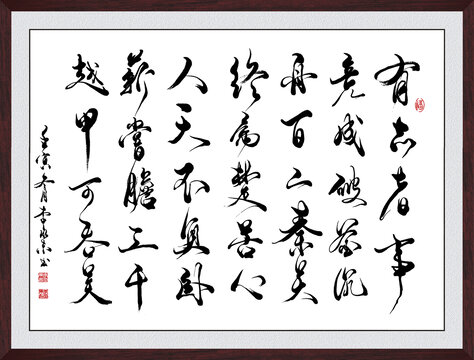 有志者事
竟成破釜沉
舟百二秦关
終属楚苦心
人天不負卧
薪嘗膽三千
越甲可吞吴
壬寅冬月李